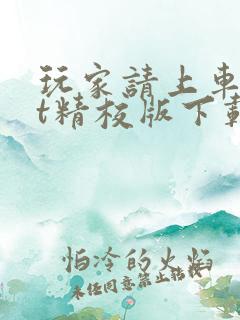 玩家請上車
t精校版下載
怕冷的火焰
未任同意禁止轉載